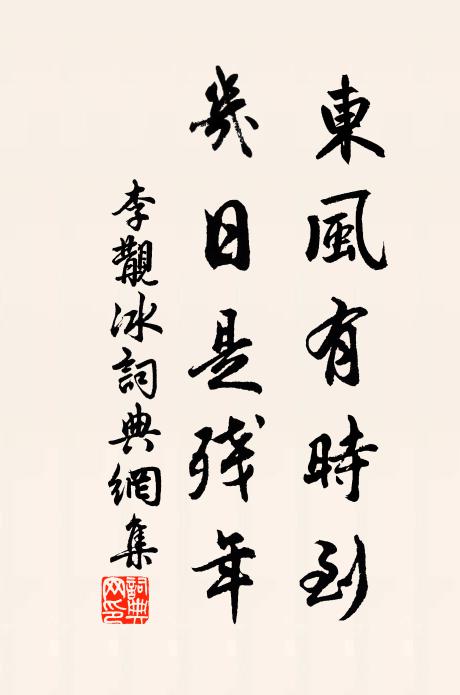 東風有時到
幾日是殘年
李觀冰詞典網集
詞典网印